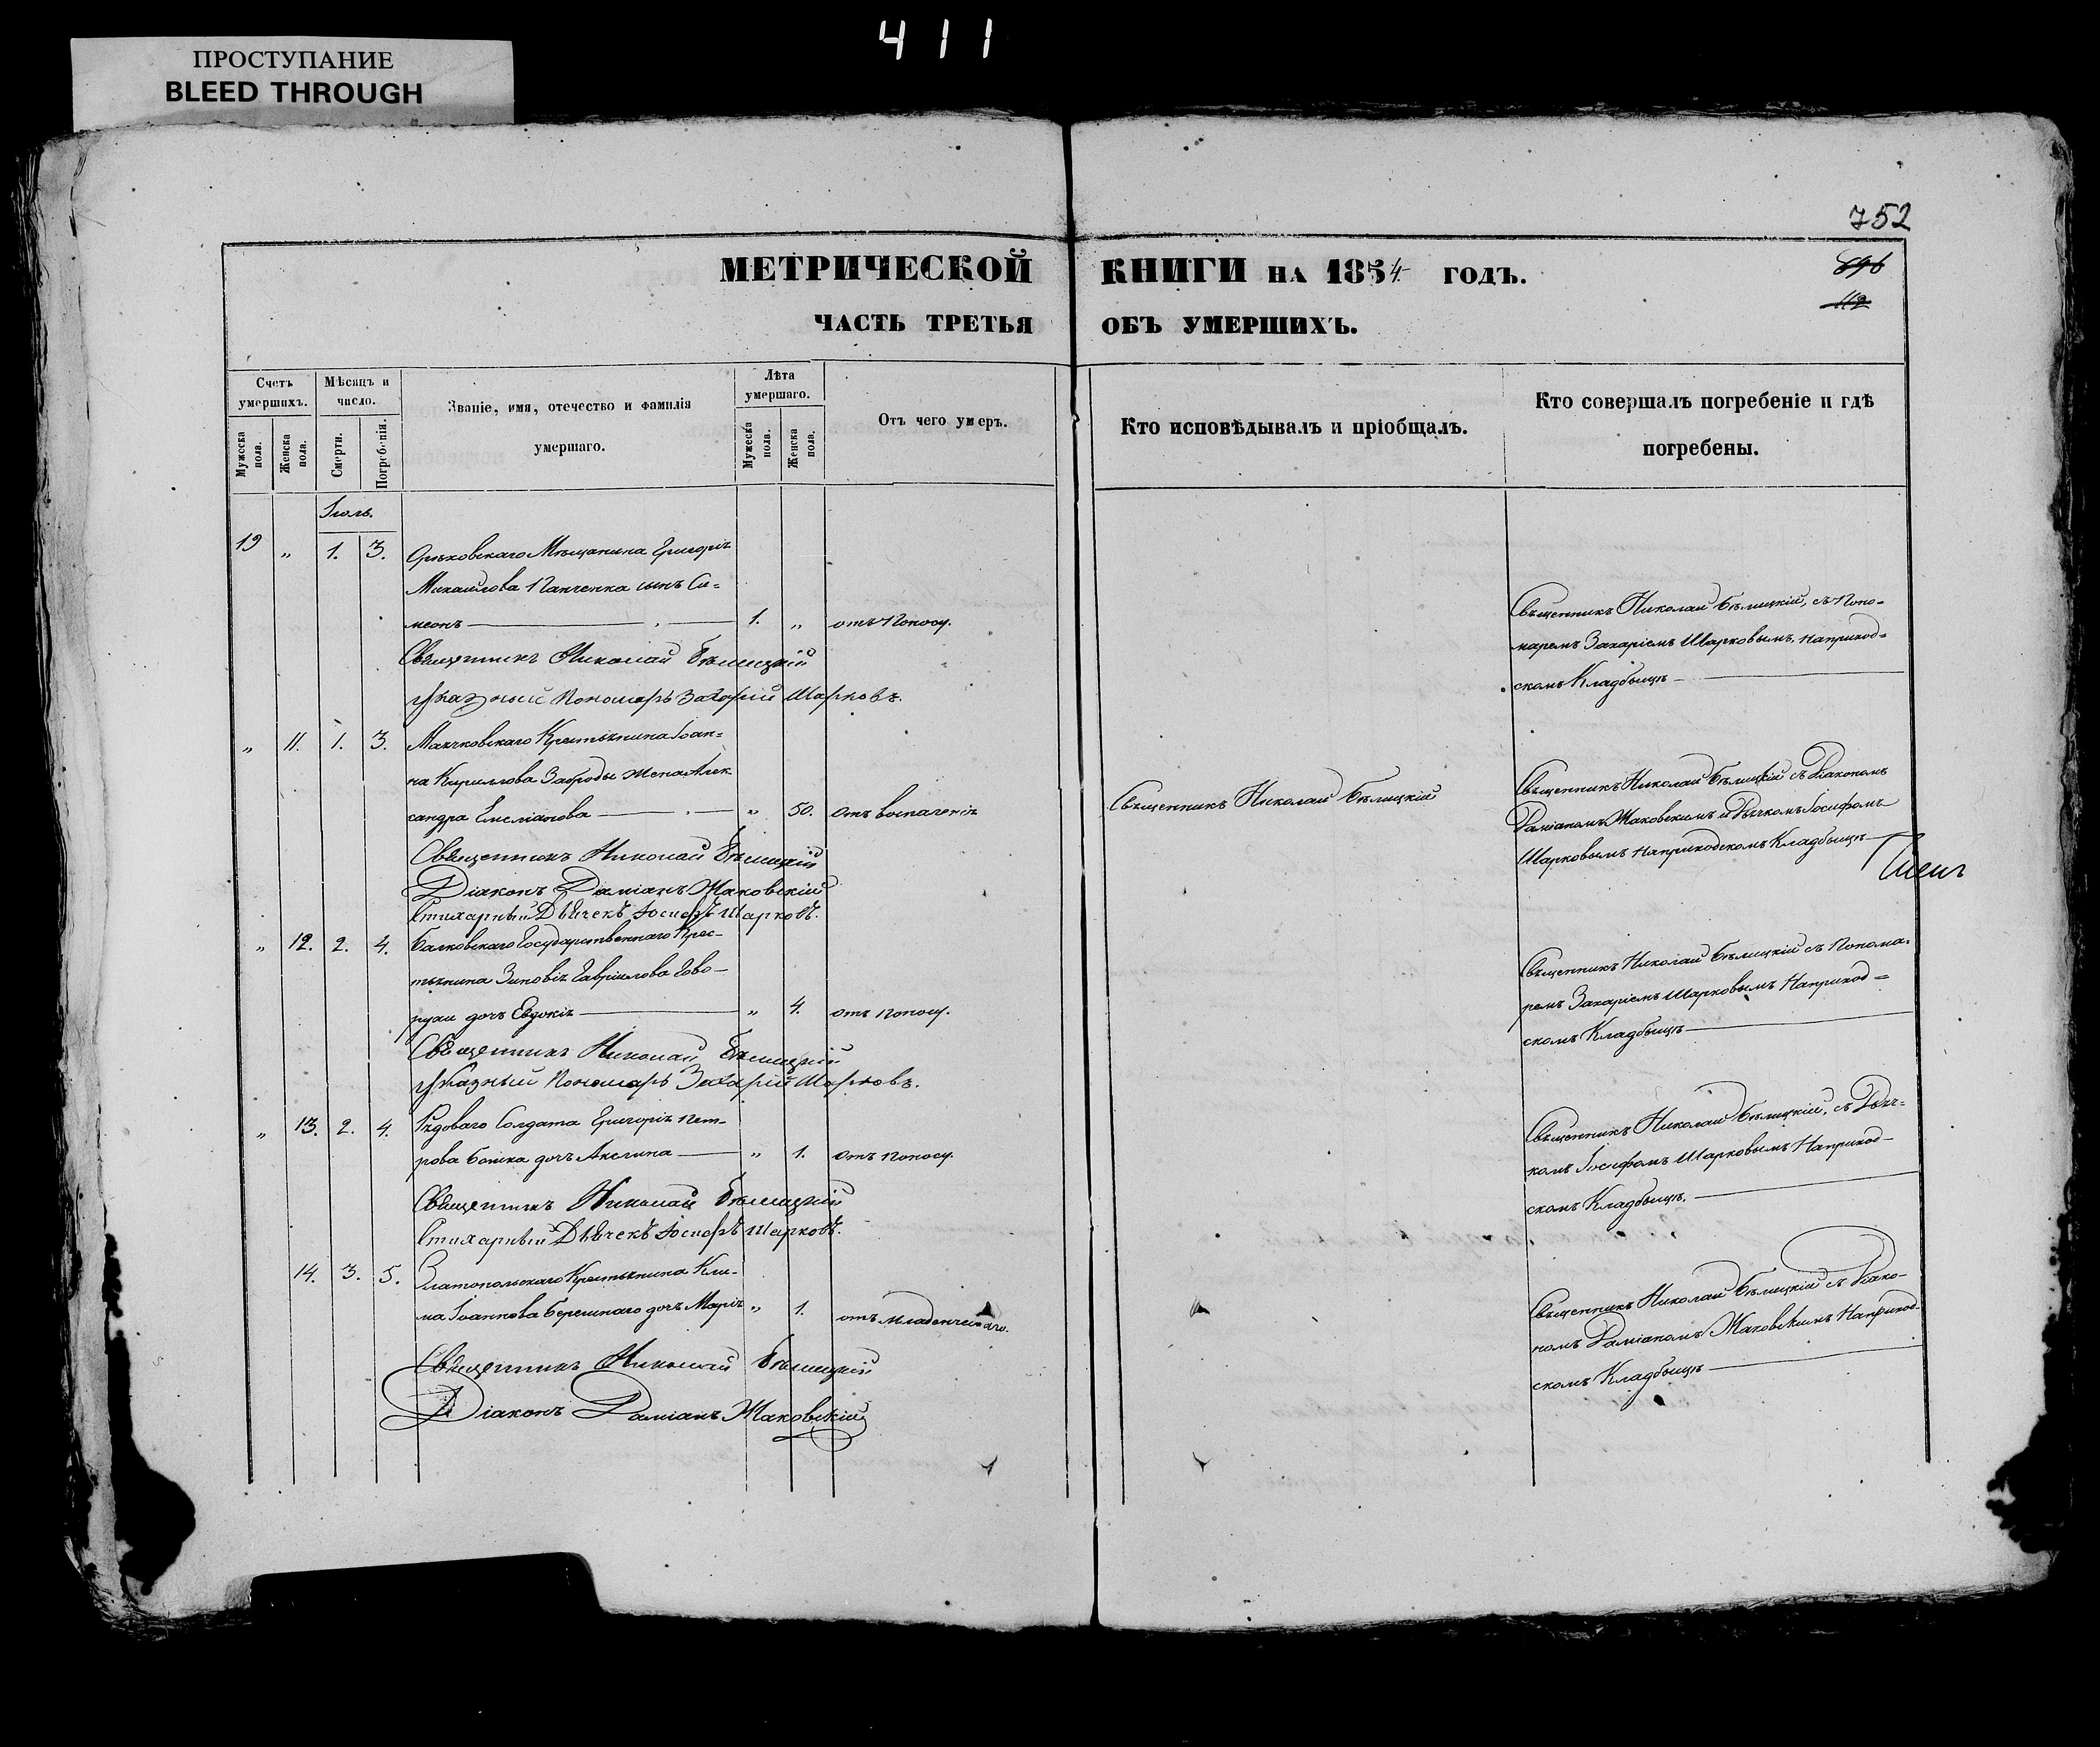 411
ПРОСТУПАНИЕ
BLEED THROUGH
752
МЕТРИЧЕСКОЙ КНИГИ НА 1854 ГОДЪ.
896
112
ЧАСТЬ ТРЕТЬЯ ОБЪ УМЕРШИХЪ.
Счетъ умершихъ.
Мужеска пола.
Женска пола.
Мѣсяцъ и число.
Смерти.
Погребенія.
Званіе, имя, отечество и фамилія
умершаго.
Лѣта умершаго.
Мужеска пола.
Женска пола.
Отъ чего умеръ.
Кто исповѣдывалъ и пріобщалъ.
Кто совершалъ погребеніе и гдѣ
погребены.
Іюль.
19 „ 1. 3. Орѣховскаго Мѣщанина Григорія
Михаилова Панченка сынъ Си=
меонъ 1. „ отъ поносу.
Священникъ Николай Бѣлицкій, съ Поно=
маремъ Захаріемъ Шарковымъ, наприход=
скомъ Кладбищѣ
Священникъ Николай Бѣлицкій
Указный Пономарь Захарій Шарковъ.
„ 11. 1. 3. Крестьянина Іоан=
на Кириллова Заброды жена Алек
сандра Емеліанова „ 50. отъ воспаленія
Священникъ Николай Бѣлицкій
Священникъ Николай Бѣлицкій съ Діакономъ
Даміаномъ Жаковскимъ и Дьячкомъ Іосифомъ
Шарковымъ наприходскомъ Кладбищѣ
Священникъ Николай Бѣлицкій
Діаконъ Даміанъ Жаковскій
Стихарный Дьячекъ Іосифъ Шарковъ.
„ 12. 2. 4. Балковскаго Государственнаго Крес-
тьянина Зиновія Гавріилова Гово-
рухи дочь Евдокія „ 4. отъ поносу.
Священникъ Николай Бѣлицкій съ Понома=
ремъ Захаріемъ Шарковымъ Наприход=
скомъ Кладбищѣ
Священникъ Николай Бѣлицкій
Указный Пономарь Захарій Шарковъ.
„ 13. 2. 4. Рядоваго Солдата Григорія Пет-
рова дочь Акилина „ 1. отъ поносу.
Священникъ Николай Бѣлицкій, съ Дьяч=
комъ Іосифомъ Шарковымъ Наприход-
скомъ Кладбищѣ.
Священникъ Николай Бѣлицкій
Стихарный Дьячекъ Іосифъ Шарковъ.
14. 3. 5. Златопольскаго Крестьянина Кли-
ма Іоаннова дочь Марія „ 1. отъ младенческаго.
Священникъ Николай Бѣлицкій съ Діако-
номъ Даміаномъ Жаковскимъ Наприход-
скомъ Кладбищѣ
Священникъ Николай Бѣлицкій
Діаконъ Даміанъ Жаковскій